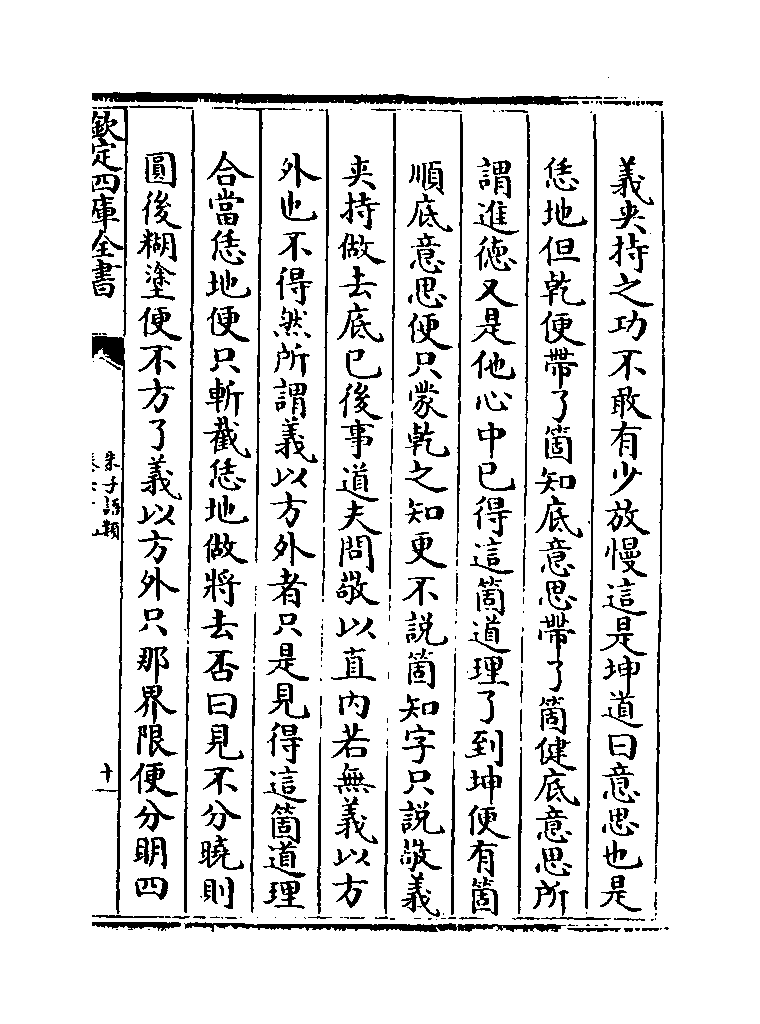 義夾持之功不敢有少放慢這是坤道曰意思也是
恁地但乾便帶了箇知底意思帶了箇健底意思所
謂進德又是他心中已得這箇道理了到坤便有箇
順底意思便只蒙乾之知更不說箇知字只說敬義
夾持做去底已後事道夫問敬以直內若無義以方
外也不得然所謂義以方外者只是見得這箇道理
合當恁地便只斬截恁地做將去否曰見不分曉則
圓後糊塗便不方了義以方外只那界限便分明四
欽定四庫全書
朱子語類
十一